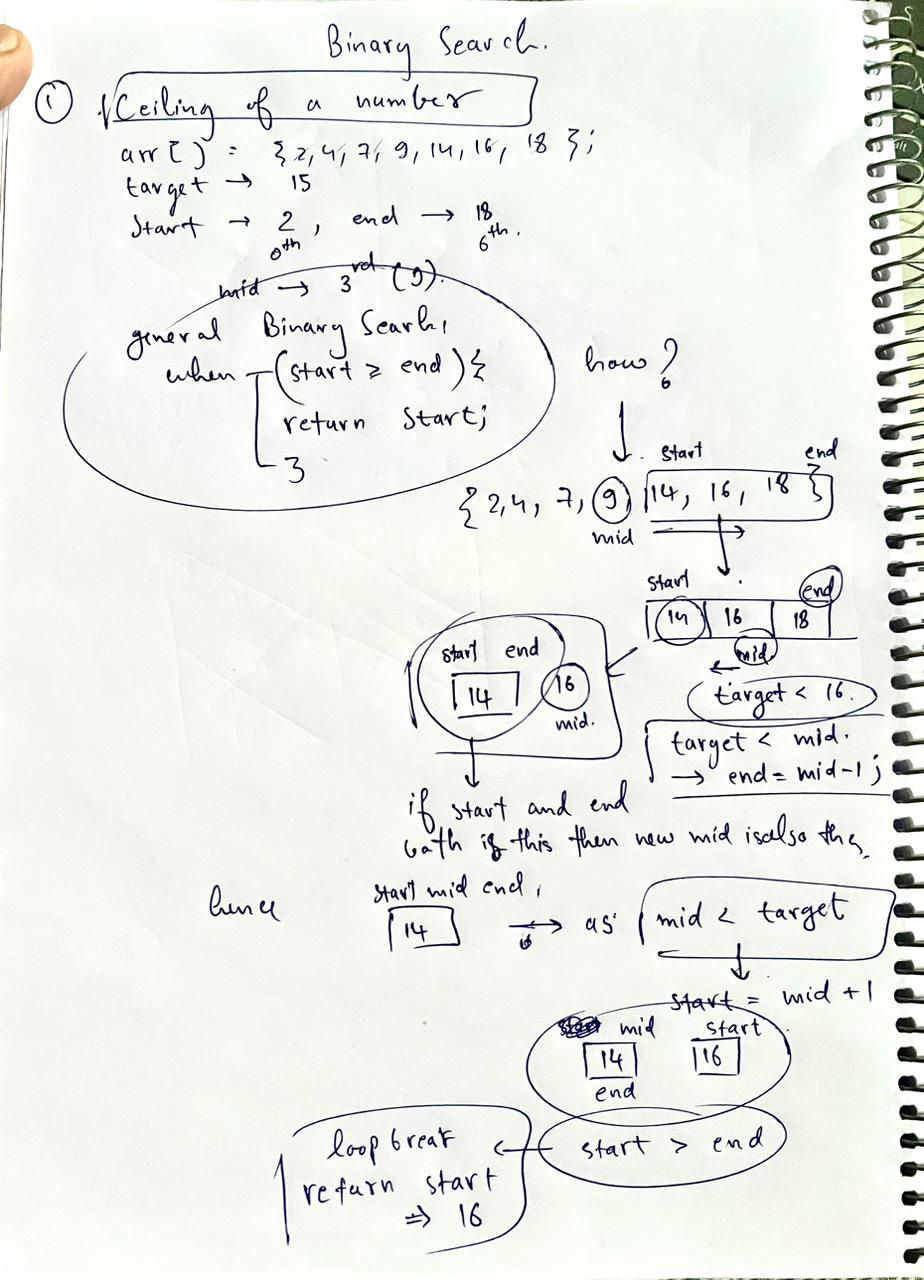 Binary Search.
① Ceiling of a number
arr[] = {2, 4, 7, 9, 14, 16, 18};
target → 15
Start → 2, end → 18
0th 6th.
mid → 3rd (9).
general Binary Search,
when (start ≥ end) {
return start;
}
how?
start end
{2, 4, 7, 9, 14, 16, 18}
mid
start end
14 16 18
mid
target < 16.
target < mid.
→ end = mid-1;
start end
14 16
mid.
if start and end
both is this then new mid is also
hence
start mid end,
14 → as mid < target
start = mid + 1
mid start
14 16
end
start > end
loop break
return start
⇒ 16